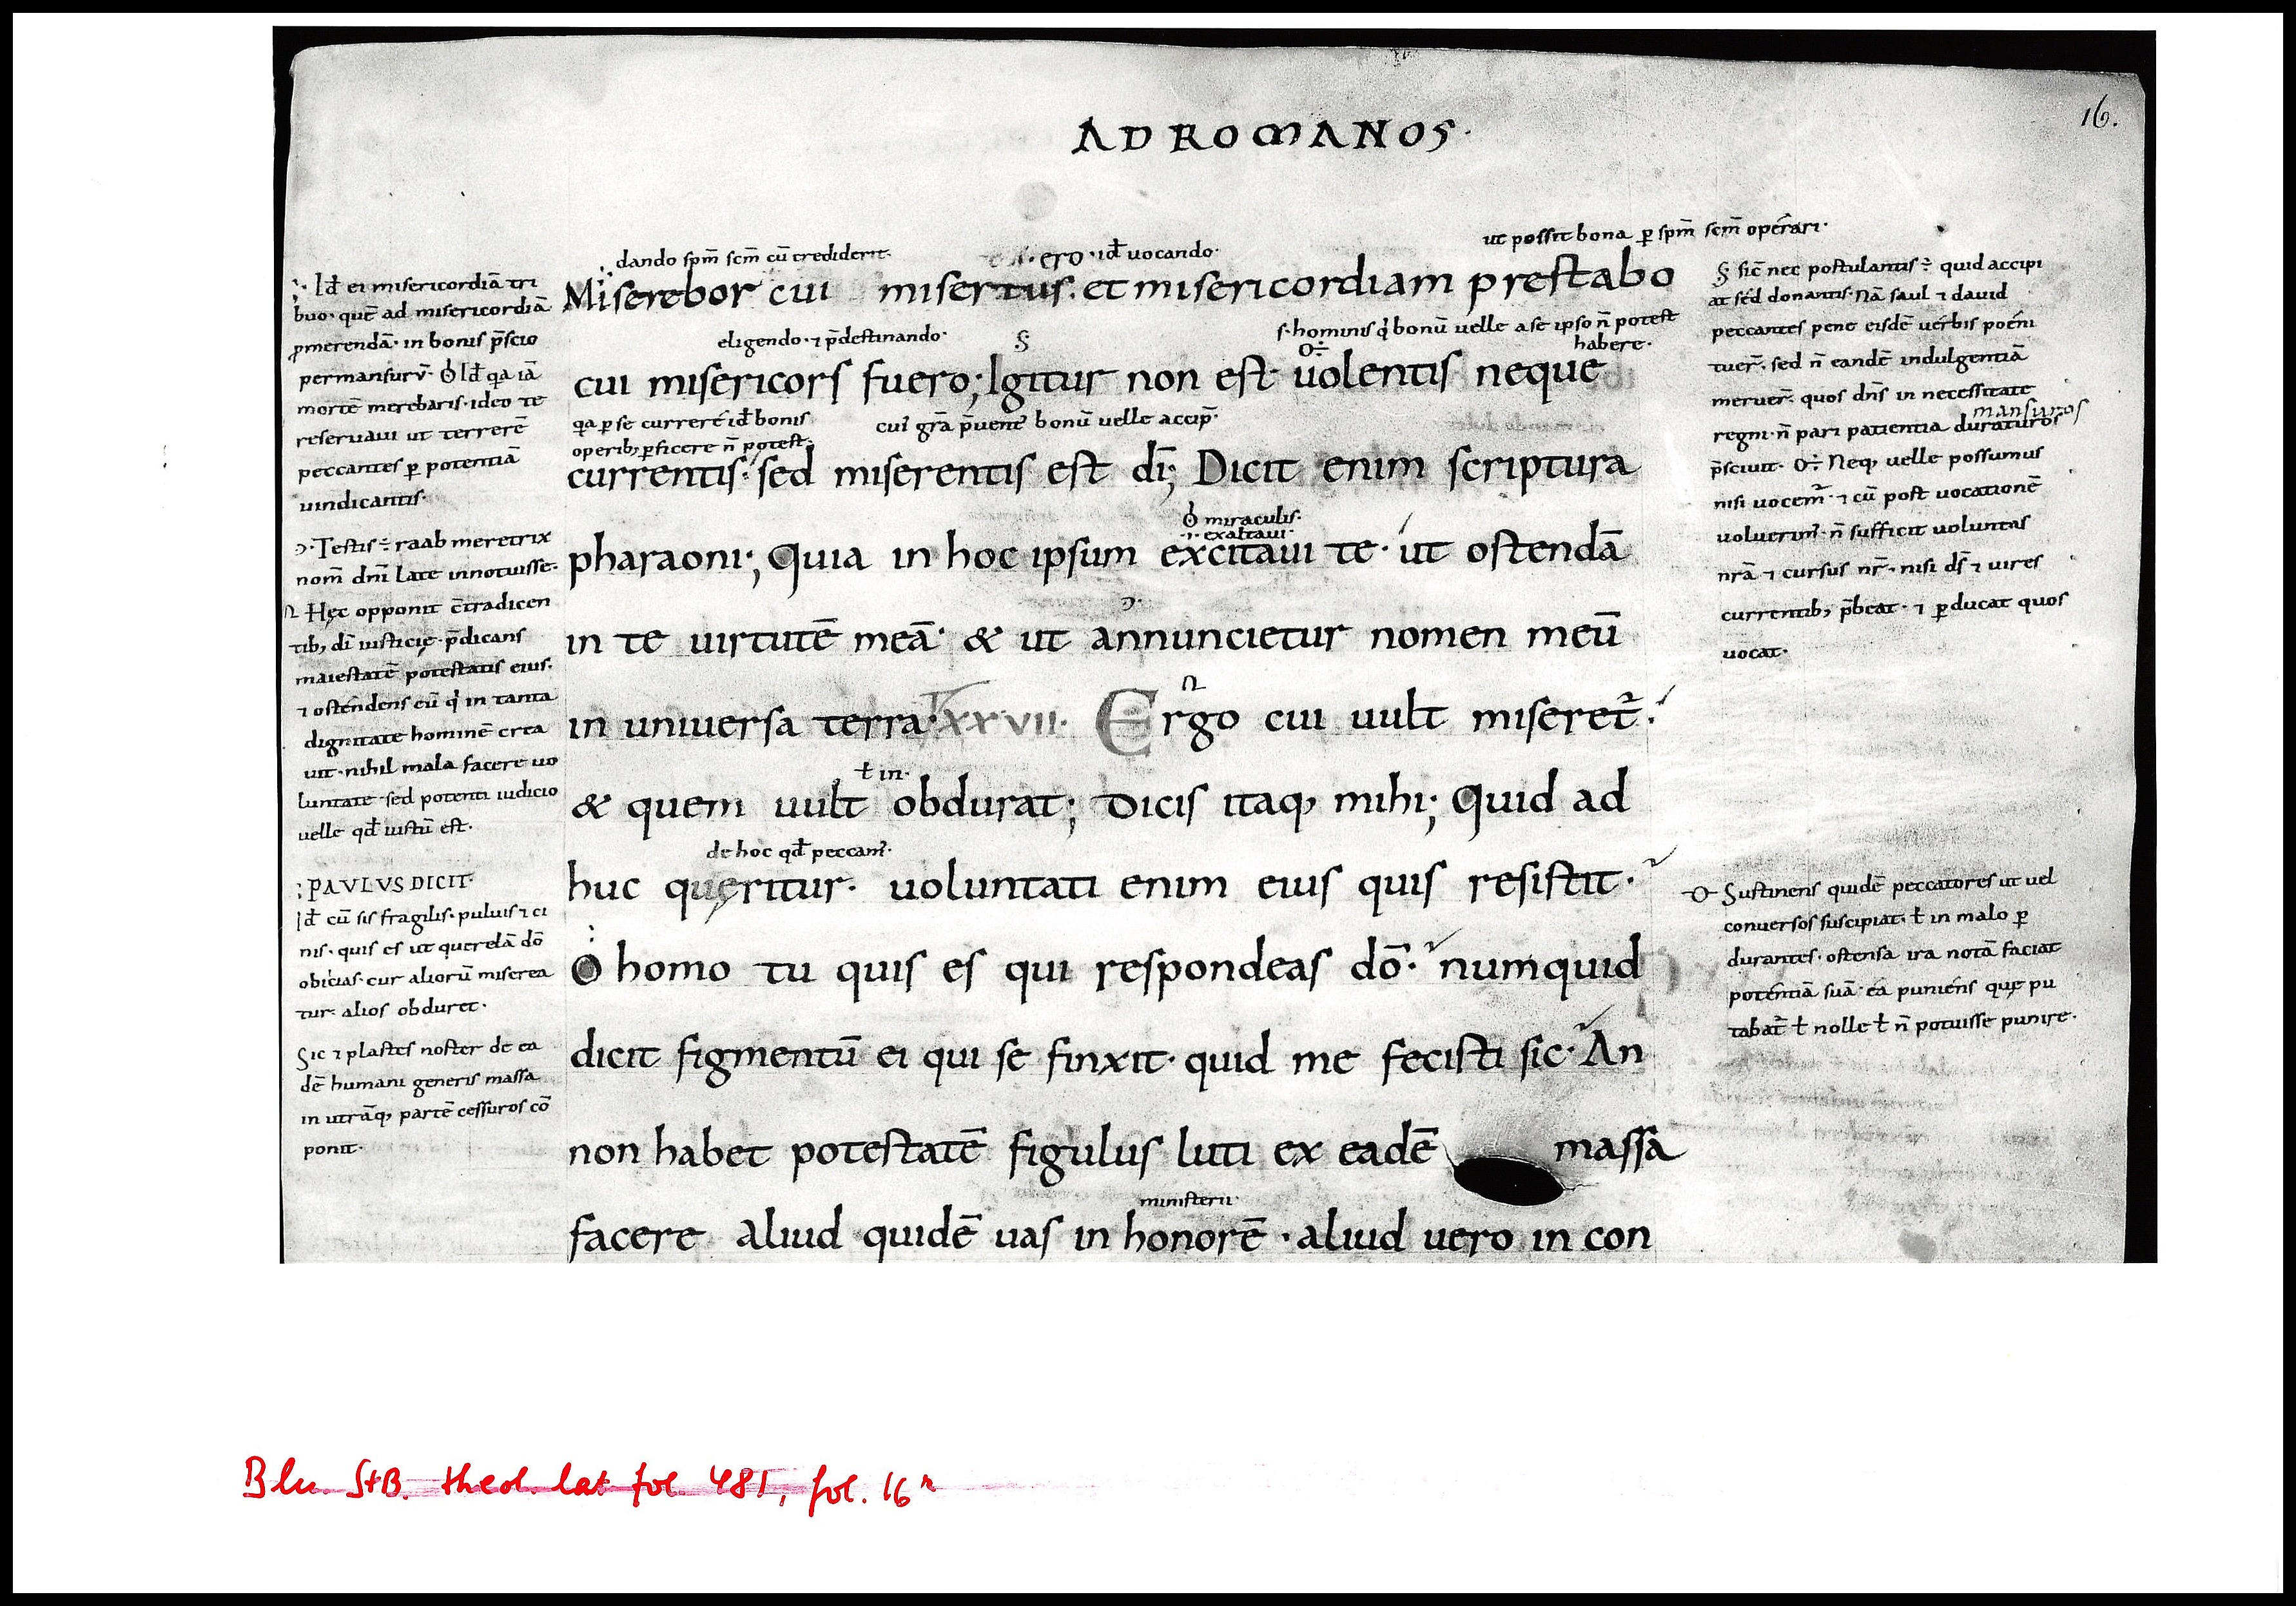 AD ROMANOS·
16.
dando spm̄ scm̄ cū crediderit·
ero·id̄ uocando·
ut possit bona ꝑ spm̄ scm̄ operari·
Miserebor cui misertus· et misericordiam prestabo
eligendo·⁊ p̄destinando·
§
s·hominis q̍ bonū uelle a se ipso n̄ potest
habere·
cui misericors fuero; Igitur non est uolentis neque
qa ꝑ se currere id̄ bonis
operib; ꝑficere n̄ potest·
cui grā p̄uenit bonū uelle accip̄·
currentis· sed miserentis est dī; Dicit enim scriptura
miraculis·
exaltaui·
pharaoni·; Quia in hoc ipsum excitaui te· ut ostendā
in te uirtutē meā· & ut annuncietur nomen meū
in uniuersa terra· XXVII· Ergo cui uult miseret̄·
ɫ in·
& quem uult obdurat; Dicis itaq; mihi·; Quid ad
de hoc qd̄ peccam̄·
huc quęritur· uoluntati enim eius quis resistit·
O homo tu quis es qui respondeas dō· numquid
dicit figmentū ei qui se finxit· quid me fecisti sic· An
non habet potestatē figulus luti ex eadē massa
ministerii·
facere aliud quidē uas in honorē· aliud uero in con
Id̄ ei misericordiā tri
buo· quē ad misericordiā
ꝓmerendā· in bonis p̄scio
permansurū· Id̄ qa iā
mortē merebaris· ideo te
reseruaui ut terrerē
peccantes ꝑ potentiā
uindicantis·
Testis ÷ raab meretrix
nom̄ dn̄i late innotuisse·
Hęc opponit c̄tradicen
tib; dī iusticię· p̄dicans
maiestatē potestatis eius·
⁊ ostendens eū q̍ in tanta
dignitate hominē crea
uit· nihil mala facere uo
luntate· sed potenti iudicio
uelle qd̄ iustū est·
PAULUS DICIT·
Id̄ cū sis fragilis· puluis ⁊ ci
nis· quis es ut querelā dō
obicias· cur alioru̅ miserea
tur· alios obduret·
Sic ⁊ plastes noster de ea
dē humani generis massa
in utrāq; partē cessuros cō
ponit·
§ sic nec postulantis ÷ quid accipi
at sed donantis· Nā saul ⁊ dauid
peccantes pene eisdē uerbis poeni
tuer̄· sed n̄ eandē indulgentiā
meruer̄· quos dn̄s in necessitate
mansuros
regni· n̄ pari patientia duraturos
p̄sciuit· Neq; uelle possumus
nisi uocem̄· ⁊ cū post uocationē
uoluerim̄· n̄ sufficit uoluntas
nrā ⁊ cursus nr̄· nisi ds̄ ⁊ uires
currentib; p̄beat· ⁊ ꝑducat quos
uocat·
Sustinens quidē peccatores ut uel
conuersos suscipiat· ɫ in malo ꝑ
durantes· ostensa ira notā faciat
potentiā suā· ea puniens quę pu
tabat̄ ɫ nolle ɫ n̄ potuisse punire·
Bln. StB. theol. lat. fol. 481, fol. 16r